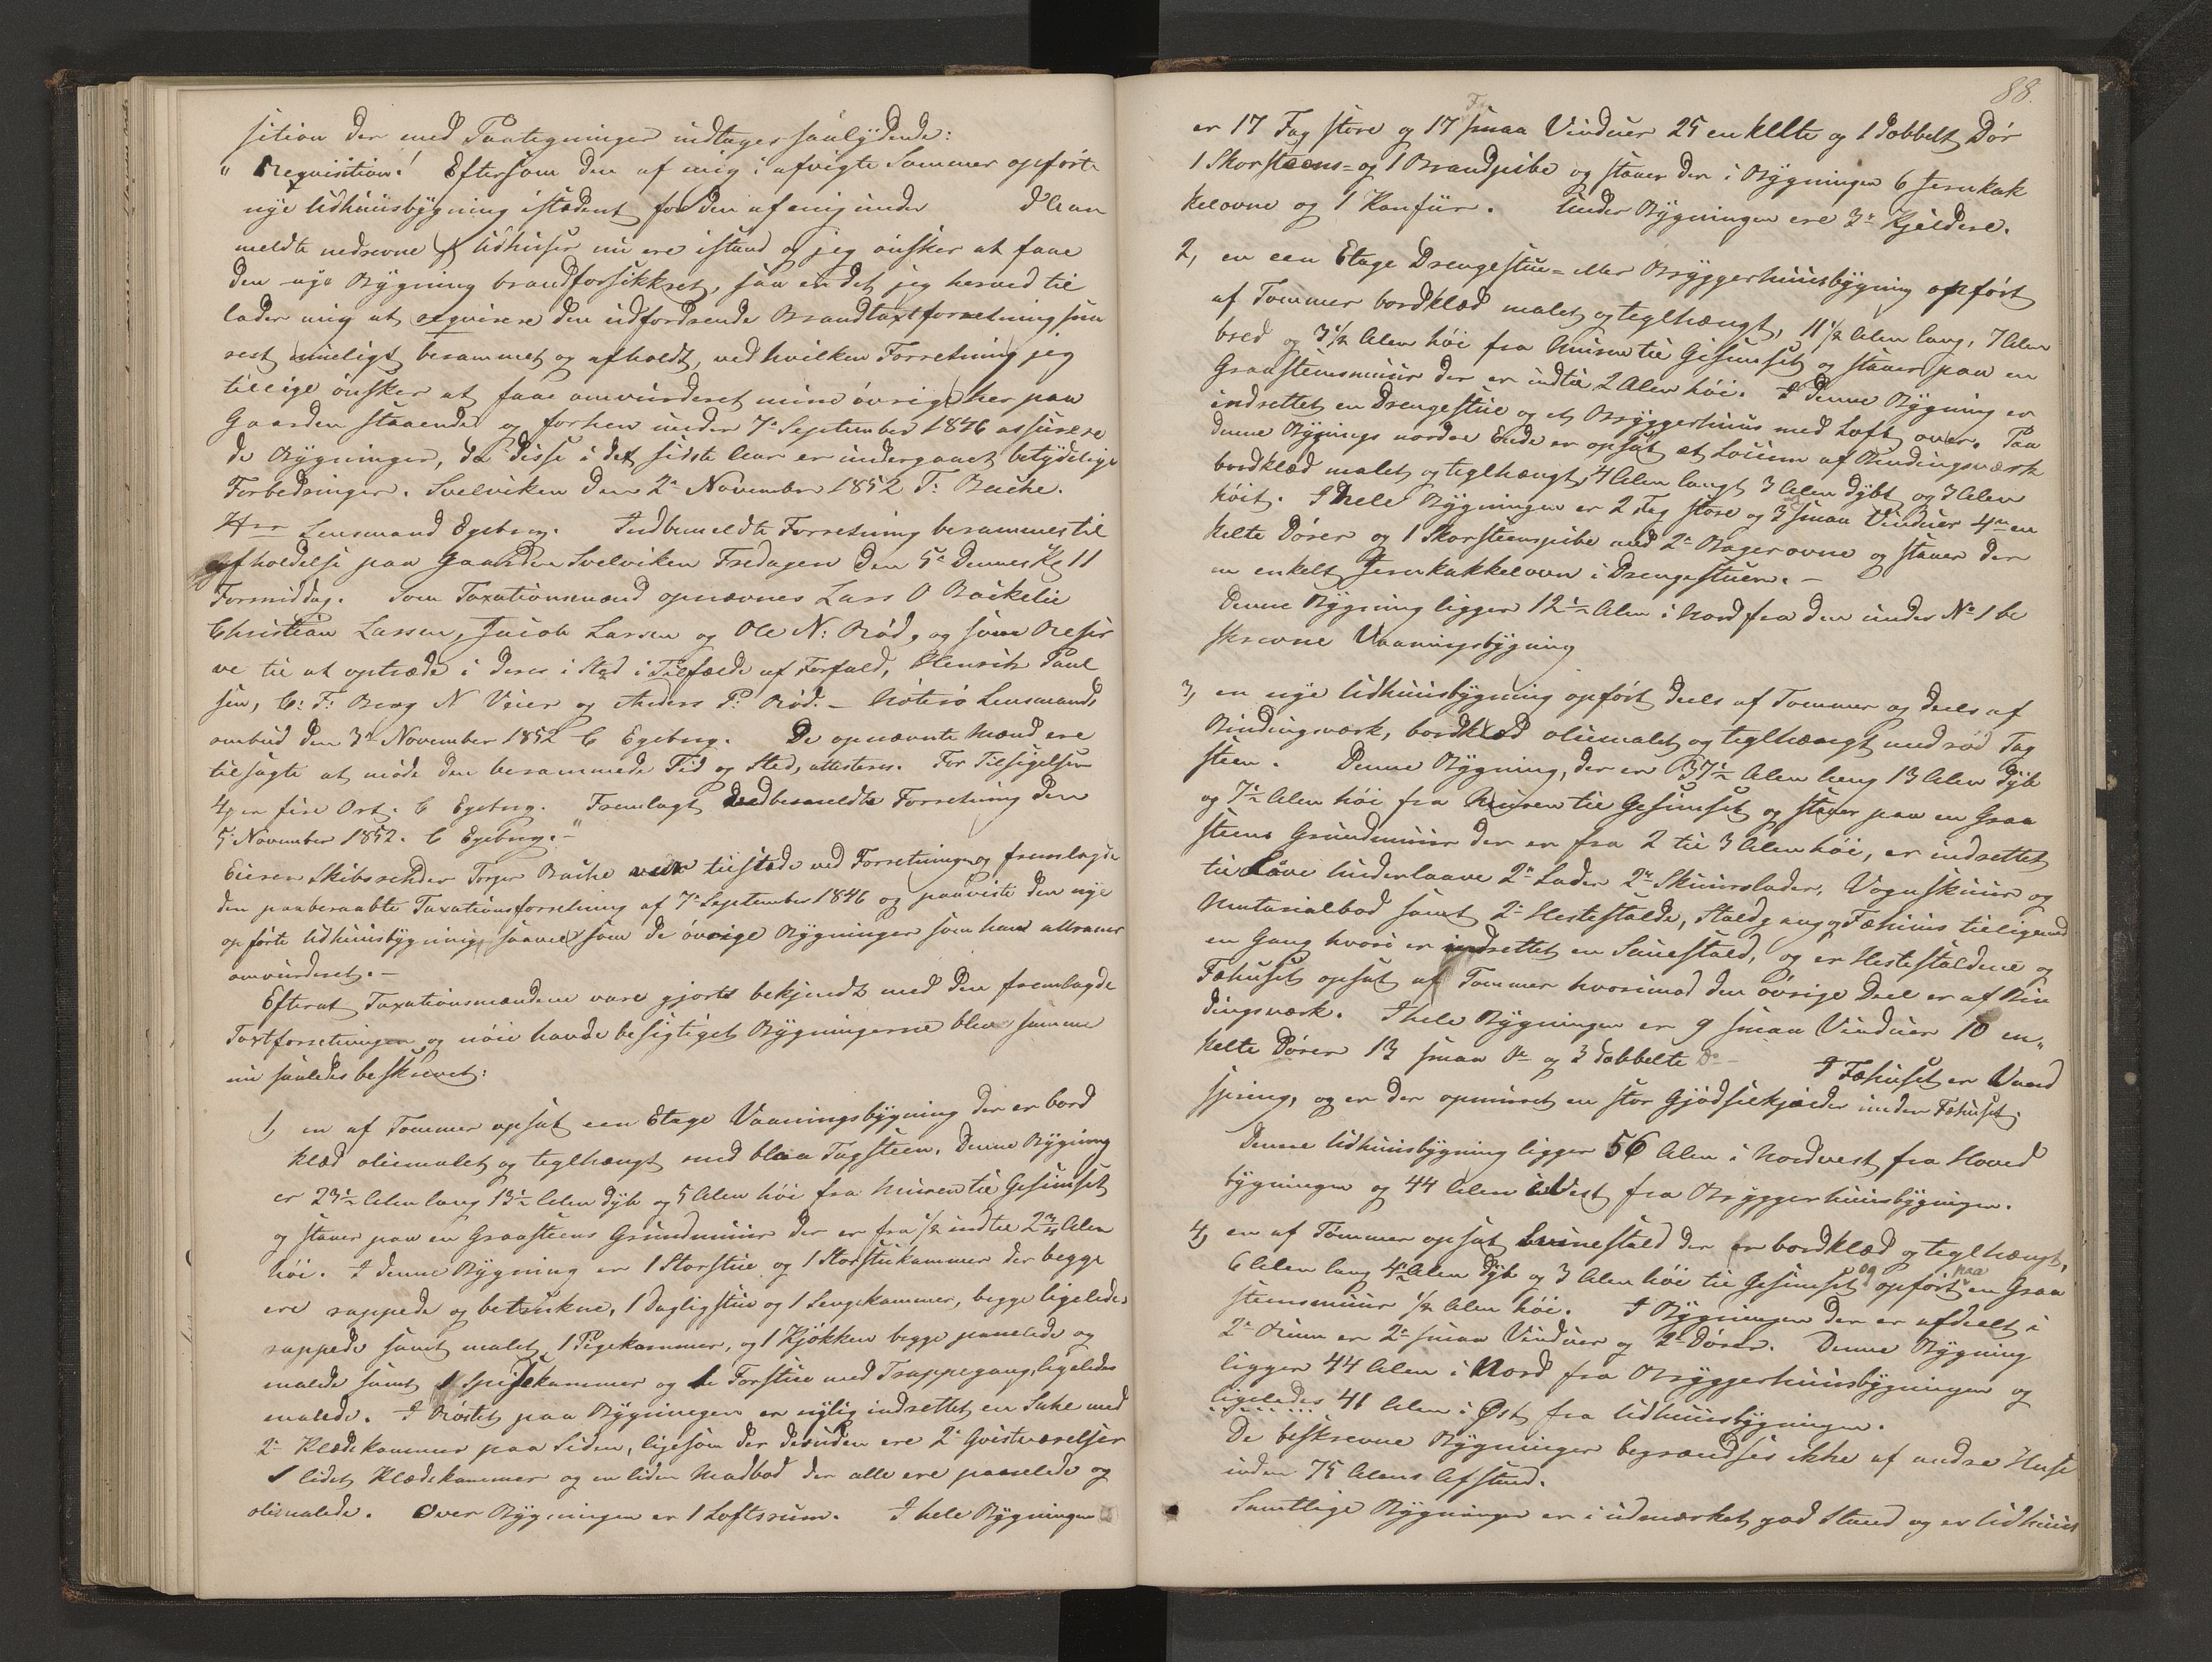 sition der med Paategninger indtages saalydende:
"Reqvisition! Eftersom den af mig i afvigte Sommer opførte
nye Udhuusbygning istedent for den af mig under d' Aan
meldte nedrevne Udhuser nu ere istand og jeg ønsker at faae
den nye Bygning brandforsikkret, saa er det jeg herved til
lader mig at reqvirere den udfordrende Brandtaxtforretning sna
rest mueligt berammet og afholdt, ved hvilken Forretning jeg
tillige ønsker at faae omvurderet mine øvrige her paa
Gaarden staaende og forhen under 7de September 1846 assurere
de Bygninger, da disse i det sidste Aar er undergaaet betydelige
Forbedringer. Svelviken den 2den November 1852 T: Bache.
Hrr Lensmand Egeberg. Indbemeldte Forretning berammes til
Afholdelse paa Gaarden Svelviken Fredagen den 5te Dennes Kl 11
Formiddag. Som Taxationsmænd opnævnes Lars O Backelie
Christian Larsen, Jacob Larsen og Ole N: Rød, og som Reser
ve til at optræde i deres i Sted i Tilfælde af Forfald, Henrik Paul
sen, C: F: Berg N Veier og Anders P: Rød. – Lensmands
ombud den 3de November 1852 C Egeberg. De opnævnte Mænd ere
tilsagte at møde den berammede Tid og Sted, attesteres. For Tilsigelsen
4 er fire Ort. C Egeberg. Fremlagt ved bemeldte Forretning den
5te November 1852. C Egeberg."–
Eieren Skibsrehder Torger Bache var tilstede ved Forretningen og fremlagde
den paaberaabte Taxationsforretning af 7de September 1846 og paaviste den nye
opførte Udhuusbygning, saavel som de øvrige Bygninger som han attraaer
omvurderet. –
Efterat Taxationsmændene vare gjorte bekjendt med den fremlagde
Taxtforretningen og nøie havde besigtiget Bygningerne blev samme
nu saaledes beskrevet:
1, en af Tømmer opsat een Etage Vaaningsbygning der er bord
klæd oliemalet og teglhængt med blaa Tagsteen. Denne Bygning
er 23½ Alen lang 13½ Alen dyb og 5 Alen høi fra Muren til Gesimset
og staaer paa en Graasteens Grundmuur der er fra ½ indtil 2¾ Alen
høi. I denne Bygning er 1 Storstue og 1 Storstukammer der begge
ere rappede og betrukne, 1 Dagligstue og 1 Sengekammer, begge ligeledes
rappede samt malet, 1 Pigekammer, og 1 Kjøkken begge panelede og
malede samt 1 Spisekammer og 1 Forstue med Trappegang, ligeledes
malede. I Røstet paa Bygningen er nylig indrettet en Sahl med
2de Klædekammer paa Siden, ligesom der desuden ere 2de Qvistværelser
1 lidet Klædekammer og en liden Madbod der alle ere panelede og
oliemalede. Over Bygningen er 1 Loftsrum. I hele Bygningen
88.
er 17 Fag store og 17 smaa Vinduer 25 enkelte og 1 dobbelt Dør
1 Skorsteens- og 1 Brandpibe og staaer der i Bygningen 6 Jernkak
kelovne og 1 Komfuur. Under Bygningen ere 3de Kjeldere.
2, en een Etage Drengestue- eller Bryggerhuusbygning opført
af Tømmer bordklæd malet og teglhængt, 11½ Alen lang, 7 Alen
bred og 3½ Alen høi fra Muren til Gesimset og staaer paa en
Graasteensmuur der er indtil 2 Alen høi. I denne Bygning er
indrettet en Drengestue og et Bryggerhuus med Loft over. Paa
denne Bygnings nordre Ende er opsat et Locum af Bindingsværk
bordklæd malet og teglhængt, 4 Alen langt 3 Alen dybt og 3 Alen
høit. I hele Bygningen er 2 Fag store og 3 smaa Vinduer 4re en
kelte Dører og 1 Skorsteenspibe med 2de Bagerovne og staaer der
en enkelt Jernkakkelovn i Drengestuen. –
Denne Bygning ligger 12½ Alen i Nord fra den under No 1 be
skrevne Vaaningsbygning
3, en nye Udhuusbygning opført deels af Tømmer og deels af
Bindingsværk, bordklæd oliemalet og teglhængt med rød Tag
steen. Denne Bygning, der er 37½ Alen lang 13 Alen dyb
og 7½ Alen høi fra Muren til Gesimset og staaer paa en Graa
steens Grundmuur der er fra 2 til 3 Alen høi, er indrettet
til Løve Underlaave 2de Lader 2de Skuurslader, Vognskuur og
Materialbod samt 2de Hestestalde, Staldgang og Fæhuus tilligemed
en Gang hvori er indrettet en Sauestald, og er Hestestaldene og
Fæhuset opsat af Tømmer hvorimod den øvrige Deel er af Bin
dingsværk. I hele Bygningen er 9 smaa Vinduer 10 en„
kelte Dører 13 smaa Do og 3 dobbelte Do – I Fæhuset er Vand
spring, og er der opmuret en stor Gjødselkjælder under Fæhuset.
Denne Udhuusbygning ligger 56 Alen i Nordvest fra Hoved
bygningen og 44 Alen i Vest fra Bryggerhuusbygningen.
4, en af Tømmer opsat Svinestald der er bordklæd og teglhængt,
6 Alen lang 4½ Alen dyb og 3 Alen høi til Gesimset og opført paa en Graa
steensmuur ½ Alen høi. I Bygningen der er afdeelt i
2de Rum er 2de smaa Vinduer og 2de Dører. Denne Bygning
ligger 44 Alen i Nord fra Bryggerhuusbygningen og
ligeledes 41 Alen i Øst fra Udhuusbygningen.
De beskrevne Bygninger begrændses ikke af andre Huse
inden 75 Alens Afstand.
Samtlige Bygninger er i udmærket god Stand og er Udhuus